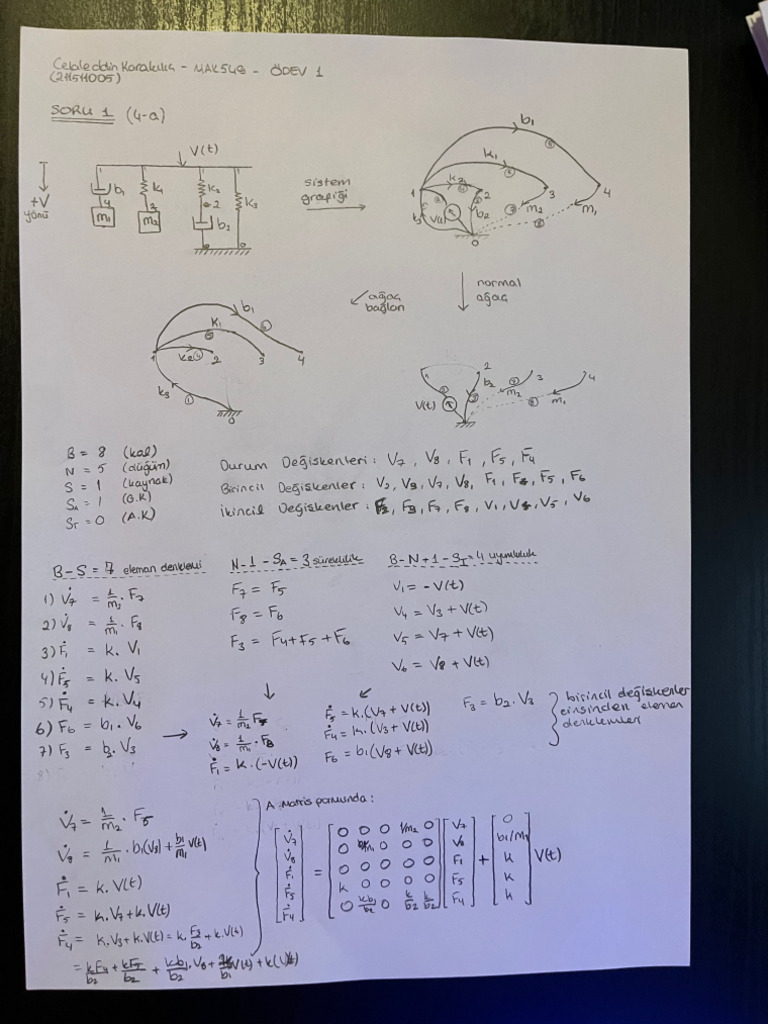 Celaleddin Karakılıç - MAK548 - ÖDEV 1
(211511005)
SORU 1 (4-a)
V(t)
+V
yönü
b₁
k₁
k₂
k₃
4
3
2
b₂
m₁
m₂
0
sistem
grafiği
b₁
k₁
k₂
1
2
3
4
V(t)
k₃
b₂
m₂
m₁
0
ağaç
bağları
normal
ağaç
b₁
k₁
k₂ ④
1
2
3
4
k₃
①
0
2
3
4
b₂
m₂
m₁
V(t)
B = 8 (kol)
N = 5 (düğüm)
S = 1 (kaynak)
S_A = 1 (G.K)
S_T = 0 (A.K)
Durum Değişkenleri : V₇ , V₈ , F₁ , F₅ , F₄
Birincil Değişkenler : V₂, V₃, V₇, V₈, F₁, F₄, F₅, F₆
İkincil Değişkenler : F₂, F₃, F₇, F₈, V₁, V₄, V₅, V₆
B-S = 7 eleman denklemi
1) V̇₇ = 1/m₂ . F₇
2) V̇₈ = 1/m₁ . F₈
3) Ḟ₁ = k. V₁
4) Ḟ₅ = k. V₅
5) Ḟ₄ = k. V₄
6) F₆ = b₁. V₆
7) F₃ = b₂. V₃
N-1-S_A = 3 süreklilik
F₇ = F₅
F₈ = F₆
F₃ = F₄+F₅+F₆
B-N+1-S_T = 4 uyumluluk
V₁ = -V(t)
V₄ = V₃ + V(t)
V₅ = V₇ + V(t)
V₆ = V₈ + V(t)
V̇₇ = 1/m₂ F₅
V̇₈ = 1/m₁ . F₈
Ḟ₁ = k.(-V(t))
Ḟ₅ = k.(V₇ + V(t))
Ḟ₄ = k.(V₃ + V(t))
F₆ = b₁(V₈ + V(t))
F₃ = b₂.V₃
birincil değişkenler
cinsinden eleman
denklemleri
V̇₇ = 1/m₂ . F₅
V̇₈ = 1/m₁ . b₁(V₈) + b₁/m₁ V(t)
Ḟ₁ = k.V(t)
Ḟ₅ = k.V₇ + k.V(t)
Ḟ₄ = k.V₃ + k.V(t) = k.F₃/b₂ + k.V(t)
= kF₄/b₂ + kF₅/b₂ + kb₁/b₂ . V₈ +
A Matris formunda :
[V̇₇] = [0 0 0 1/m₂ 0] [V₇] + [0]
[V̇₈] [0 b₁/m₁ 0 0 0] [V₈] [b₁/m₁]
[Ḟ₁] [0 0 0 0 0] [F₁] [k] V(t)
[Ḟ₅] [k 0 0 0 0] [F₅] [k]
[Ḟ₄] [0 kb₁/b₂ 0 k/b₂ k/b₂] [F₄] [k]